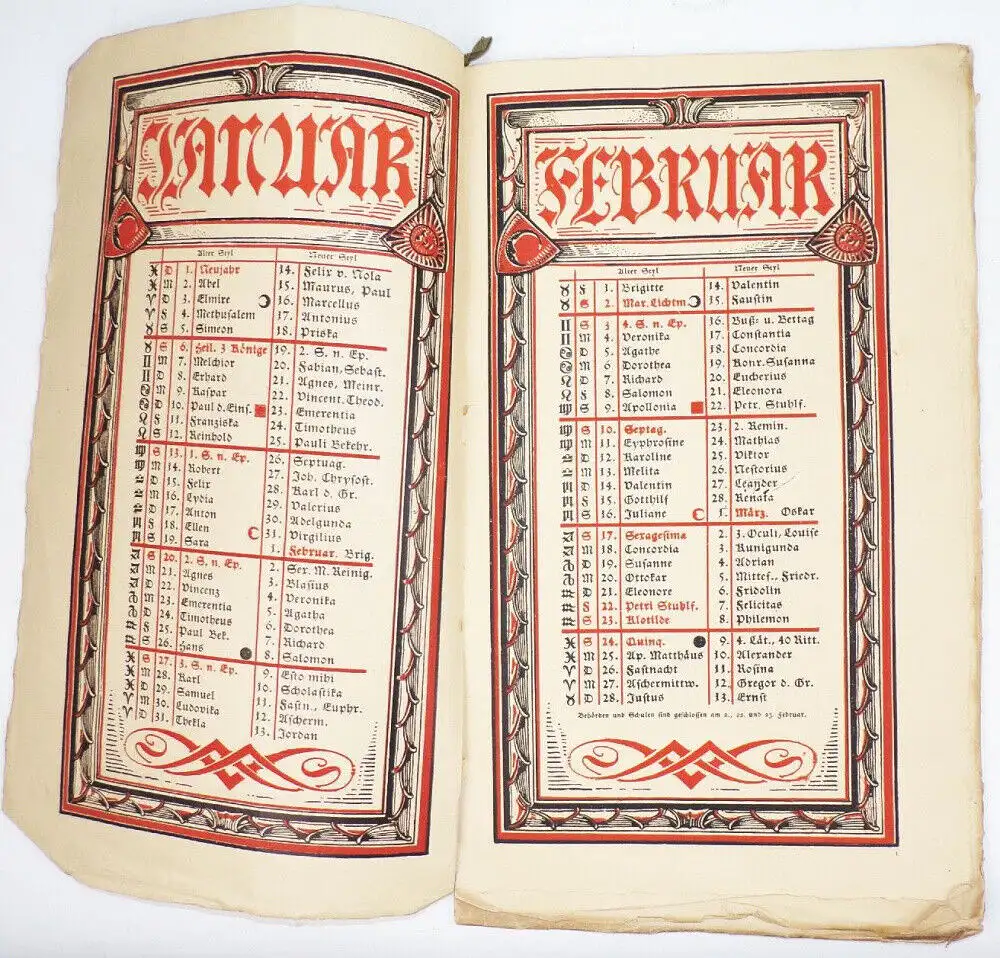 JANUAR
Alter Styl Neuer Styl
D 1. Neujahr 14. Felix v. Nola
M 2. Abel 15. Maurus, Paul
D 3. Elmire 16. Marcellus
F 4. Methusalem 17. Antonius
S 5. Simeon 18. Priska
S 6. Heil. 3 Könige 19. 2. S. n. Ep.
M 7. Melchior 20. Fabian, Sebast.
D 8. Erhard 21. Agnes, Meinr.
M 9. Kaspar 22. Vincent. Theod.
D 10. Paul d. Eins. 23. Emerentia
F 11. Franziska 24. Timotheus
S 12. Reinhold 25. Pauli Bekehr.
S 13. 1. S. n. Ep. 26. Septuag.
M 14. Robert 27. Joh. Chrysost.
D 15. Felix 28. Karl d. Gr.
M 16. Lydia 29. Valerius
D 17. Anton 30. Adelgunda
F 18. Ellen 31. Virgilius
S 19. Sara 1. Februar. Brig.
S 20. 2. S. n. Ep. 2. Ser. M. Reinig.
M 21. Agnes 3. Blasius
D 22. Vincenz 4. Veronika
M 23. Emerentia 5. Agatha
D 24. Timotheus 6. Dorothea
F 25. Paul Bek. 7. Richard
S 26. Hans 8. Salomon
S 27. 3. S. n. Ep. 9. Esto mihi
M 28. Karl 10. Scholastika
D 29. Samuel 11. Fastn., Euphr.
M 30. Ludovika 12. Ascherm.
D 31. Thekla 13. Jordan
FEBRUAR
Alter Styl Neuer Styl
F 1. Brigitte 14. Valentin
S 2. Mar. Lichtm. 15. Faustin
S 3 4. S. n. Ep. 16. Buß- u. Bettag
M 4. Veronika 17. Constantia
D 5. Agathe 18. Concordia
M 6. Dorothea 19. Konr. Susanna
D 7. Richard 20. Eucherius
F 8. Salomon 21. Eleonora
S 9. Apollonia 22. Petr. Stuhlf.
S 10. Septag. 23. 2. Remin.
M 11. Eyphrosine 24. Mathias
D 12. Karoline 25. Viktor
M 13. Melita 26. Nestorius
D 14. Valentin 27. Leander
F 15. Gotthilf 28. Renata
S 16. Juliane 1. März. Oskar
S 17. Sexagesima 2. 3. Oculi, Louise
M 18. Concordia 3. Kunigunda
D 19. Susanne 4. Adrian
M 20. Ottokar 5. Mittef., Friedr.
D 21. Eleonore 6. Fridolin
F 22. Petri Stuhlf. 7. Felicitas
S 23. Klotilde 8. Philemon
S 24. Quinq. 9. 4. Lät., 40 Ritt.
M 25. Ap. Matthäus 10. Alexander
D 26. Fastnacht 11. Rosina
M 27. Aschermittw. 12. Gregor d. Gr.
D 28. Justus 13. Ernst
Behörden und Schulen sind geschlossen am 2., 22. und 23. Februar.